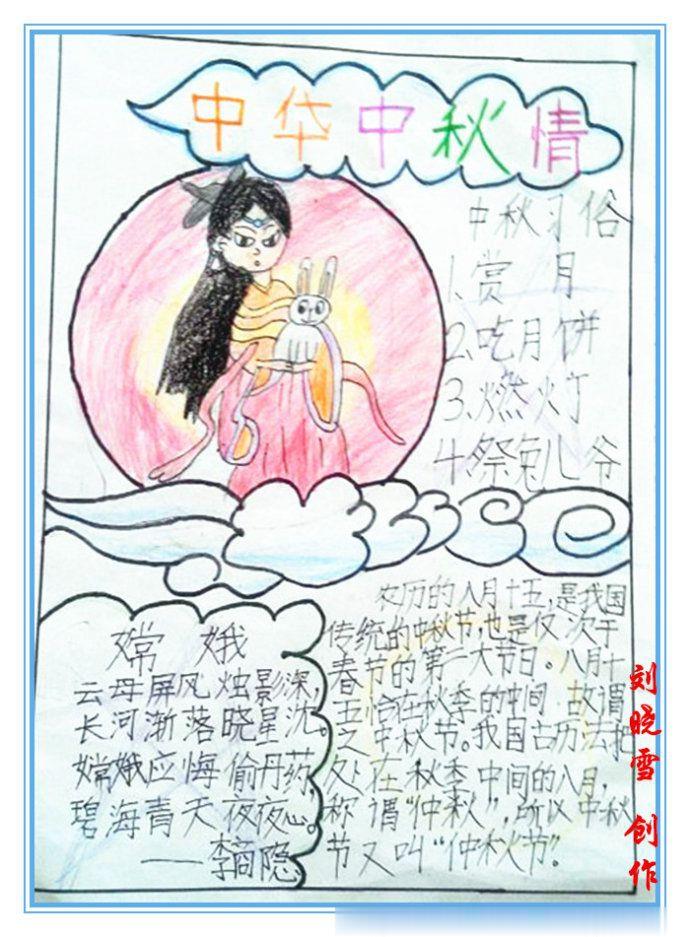 中华中秋情
中秋习俗
1.赏月
2.吃月饼
3.燃灯
4.祭兔儿爷
嫦娥
云母屏风烛影深，
长河渐落晓星沈。
嫦娥应悔偷丹药
碧海青天夜夜心。
——李商隐
农历的八月十五，是我国
传统的中秋节，也是仅次于
春节的第二大节日。八月十
五恰在秋季的中间，故谓
之中秋节。我国古历法把
处在秋季中间的八月，
称谓“仲秋”，所以中秋
节又叫“仲秋节”。
刘晓雪 创作